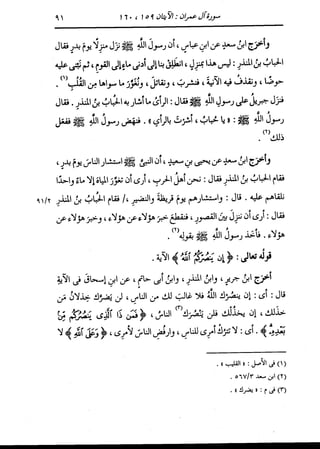 سورة آل عمران : الآيتان ١٥٩ ، ١٦٠
٩١
وأخرج ابنُ سعدٍ عن ابنِ عباسٍ ، أن رسولَ اللَّهِ ﷺ نزَل منزلًا يومَ بدرٍ ، فقال
الحُبابُ بنُ المنذرِ : ليس هذا بمنزلٍ ، انطلِقْ بنا إلى أدنى ماءٍ إلى القومِ ، ثم نَبْنِى عليه
حوضًا ، ونَقذِفُ فيه الآنيةَ ، فنشرَبُ ، ونقاتِلُ ، ونُغَوِّرُ ما سِواها مِن القُلُبِ(١) .
فنزَل جبريلُ على رسولِ اللَّهِ ﷺ فقال : الرأىُ ما أشار به الحبابُ بنُ المنذرِ . فقال
رسولُ اللَّهِ ﷺ : « يا حُبابُ ، أشَرتَ بالرأىِ » . فنهَض رسولُ اللَّهِ ﷺ ففعَل
ذلك(٢) .
وأخرج ابنُ سعدٍ عن يحيى بنِ سعيدٍ ، أن النبىَّ ﷺ استشار الناسَ يومَ بدرٍ ،
فقام الحبابُ بنُ المنذرِ فقال : نحن أهلُ الحربِ ، أرى أن تُغَوِّرَ المياهَ إلا ماءً واحدًا
نلقاهم عليه . قال : واستشارهم يومَ قريظةَ والنضيرِ ، / فقام الحبابُ بنُ المنذرِ
٩١/٢
فقال : أرى أن ننزِلَ بينَ القصورِ ، فنقطعَ خبرَ هؤلاء عن هؤلاء ، وخبرَ هؤلاء عن
هؤلاء . فأخَذ رسولُ اللَّهِ ﷺ بقولِه(٢) .
قولُه تعالى : ﴿ إِن يَنصُرْكُمُ ٱللَّهُ ﴾ الآية .
أخرَج ابنُ جريرٍ ، وابنُ المنذرِ ، وابنُ أبى حاتمٍ ، عن ابنِ إسحاقَ فى الآيةِ
قال : أى : إن ينصُرْك اللَّهُ فلا غالبَ لك مِن الناسِ ، لن يضُرَّك خِذلانُ مَن
خذَلك ، إن يخذُلْك فلن ينصُرَك(٣) الناسُ ، ﴿ فَمَن ذَا ٱلَّذِى يَنصُرُكُم مِّنۢ
بَعْدِهِۦ ﴾ . أى : لا تترُكْ أمرى للناسِ ، وارفُضِ الناسَ لأمرى ، ﴿ وَعَلَى ٱللَّهِ ﴾ لا
(١) فى الأصل : « القليب » .
(٢) ابن سعد ٥٦٧/٣ .
(٣) فى م : « يضرك » .